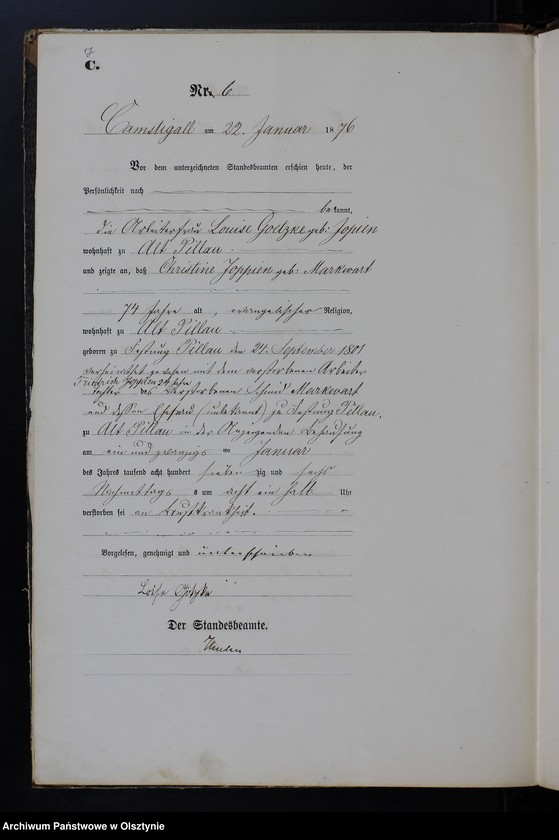 7
C.
Nr. 6
Camstigall am 22. Januar 1876
Vor dem unterzeichneten Standesbeamten erschien heute, der
Persönlichkeit nach
bekannt,
die Arbeiterfrau Louise Goetzke geb: Jopien
wohnhaft zu Alt Pillau
und zeigte an, daß Christine Joppien geb: Markwart
74 Jahre alt, evangelischer Religion,
wohnhaft zu Alt Pillau
geboren zu Festung Pillau den 21. September 1801
verheirathet gewesen mit dem verstorbenen Arbeiter
Friedrich Joppien
Tochter des verstorbenen Schmid Markwart
und dessen Ehefrau (unbekannt) zu Festung Pillau,
zu Alt Pillau in der Behausung
am ein und zwanzigs ten Januar
des Jahres tausend acht hundert sieben zig und sechs
Nachmittags um acht ein halb Uhr
verstorben sei an Brustkrankheit.
Vorgelesen, genehmigt und unterschrieben
Der Standesbeamte.
Archiwum Państwowe w Olsztynie